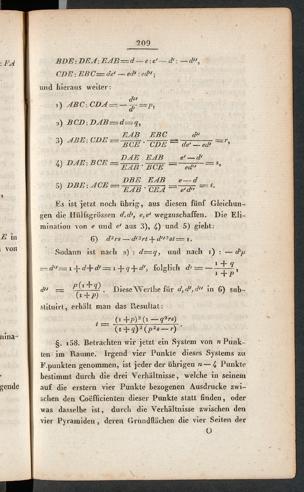 209
BDE:DEA:EAB=d—e:e'—d':—d'',
CDE:EBC=de'—ed':ed'';
und hieraus weiter:
1) ABC:CDA=—d''/d'=p,
2) BCD:DAB=d=q,
3) ABE:CDE=EAB/BCE·EBC/CDE=d''/(de'—ed')=r,
4) DAE:BCE=DAE/EAB·EAB/BCE=(e'—d')/ed''=s,
5) DBE:ACE=DBE/EAB·EAB/CEA=(e—d)/e'=t.
Es ist jetzt noch übrig, aus diesen fünf Gleichun-
gen die Hülfsgrössen d, d', e, e' wegzuschaffen. Die Eli-
mination von e und e' aus 3), 4) und 5) giebt:
Sodann ist nach 2): d=q, und nach 1): —d'p
=d''=1+d+d'=1+q+d', folglich d'=—(1+q)/(1+p),
d''=p(1+q)/(1+p). Diese Werthe für d, d', d'' in 6) sub-
stituirt, erhält man das Resultat:
§. 158. Betrachten wir jetzt ein System von n Punk-
ten im Raume. Irgend vier Punkte dieses Systems zu
F.punkten genommen, ist jeder der übrigen n—4 Punkte
bestimmt durch die drei Verhältnisse, welche in seinem
auf die erstern vier Punkte bezogenen Ausdrucke zwi-
schen den Coëfficienten dieser Punkte statt finden, oder
was dasselbe ist, durch die Verhältnisse zwischen den
vier Pyramiden, deren Grundflächen die vier Seiten der
O
: FA
E in
von
mina-
gende